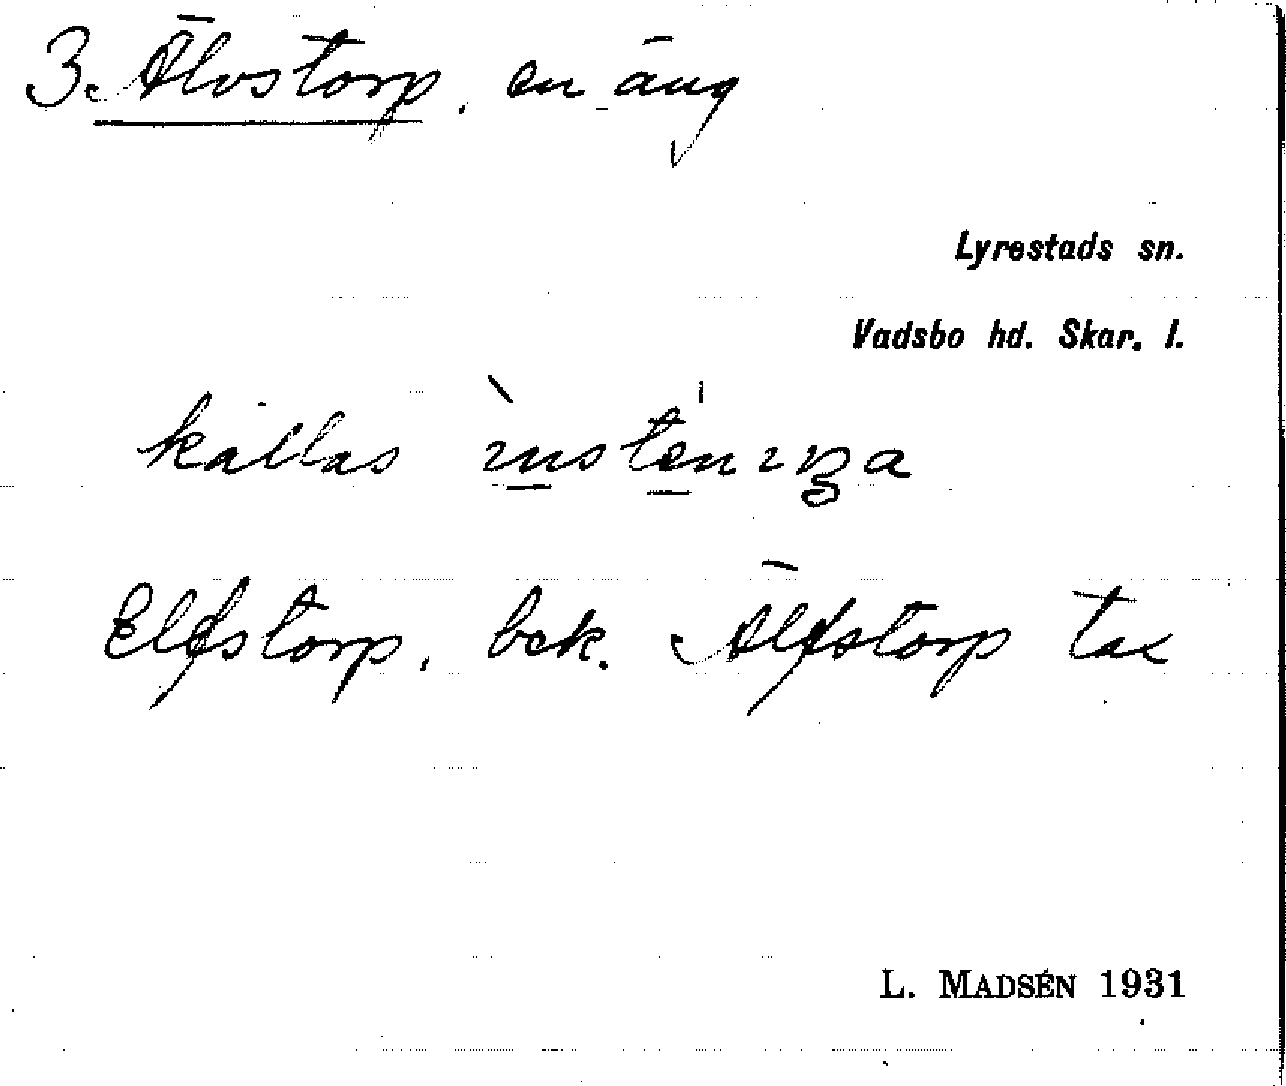 3. Älvstorp, en äng
Lyrestads sn.
Vadsbo hd. Skar. l.
kallas
Elfstorp, bek. Älfstorp tax
L. MADSÉN 1931